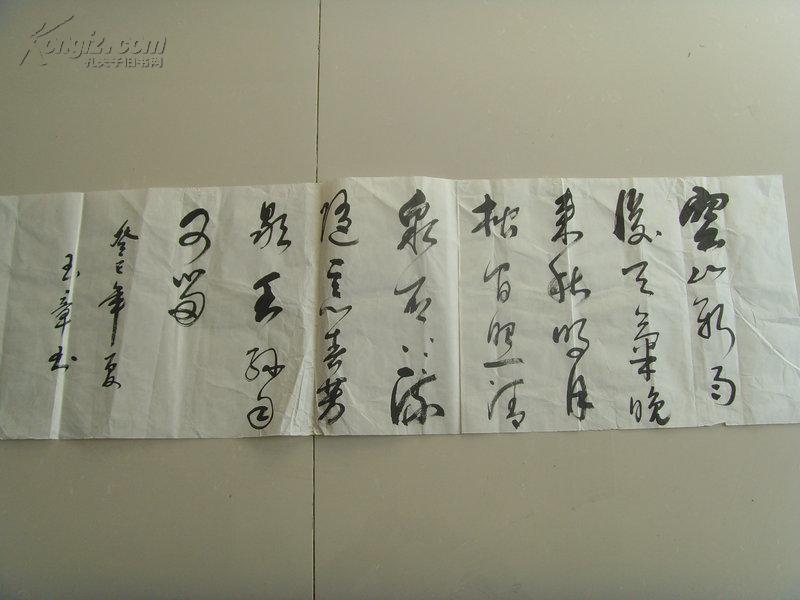 空山新雨
後天氣晚
来秋明月
松间照清
泉石上流
随意春芳
歇王孙自
可留
癸巳年夏
玉章书
Kongfz.com
孔夫子旧书网